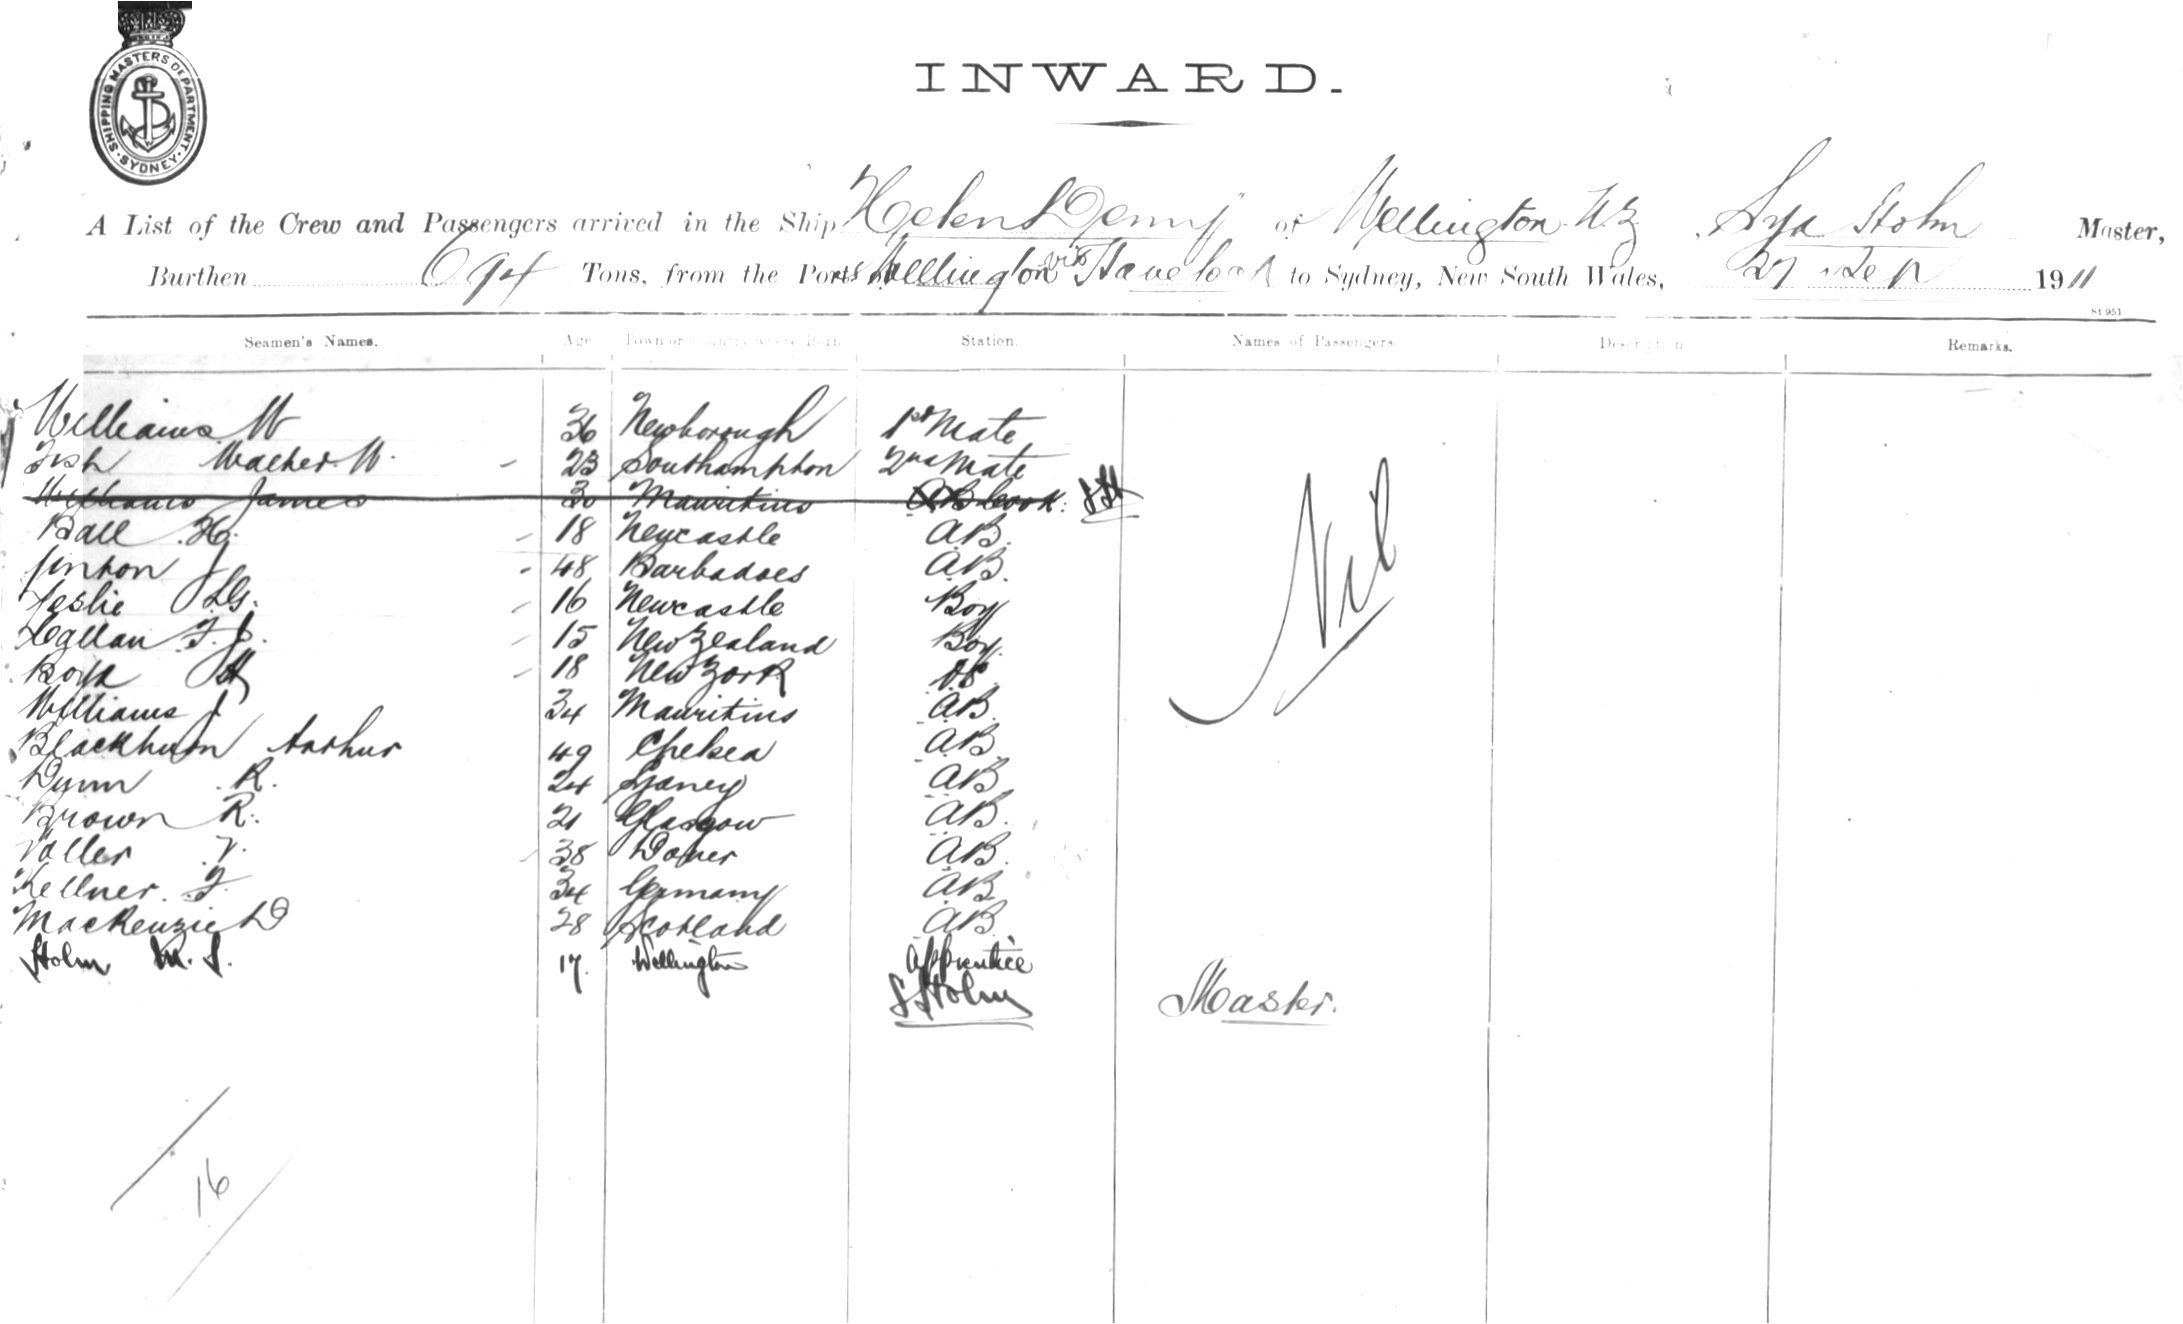 SHIPPING MASTERS DEPARTMENT · SYDNEY ·
INWARD.
A List of the Crew and Passengers arrived in the Ship Helen Denny of Wellington N Z, Holm Master,
Burthen 694 Tons, from the Ports Wellington via Havelock to Sydney, New South Wales, 27 Sep 1911
St 951
Seamen's Names. Age Town or Country where Born Station. Names of Passengers Description Remarks.
Williams W 36 Newborough 1st Mate
Fish Walter W. 23 Southampton 2nd Mate
Williams James 30 Mauritius AB Cook. SH
Ball H. 18 Newcastle AB.
J 48 Barbadoes AB.
Leslie 16 Newcastle Boy
F. J. 15 New Zealand Boy.
Boyd 18 New York
Williams J 34 Mauritius AB.
Blackburn Arthur 49 Chelsea AB
Dunn R. 24 Sydney AB
Brown R. 21 Glasgow AB.
Valler V. 38 Dover AB.
Kellner F. 34 Germany AB
MacKenzie D 28 Scotland AB
Holm M. S. 17. Wellington Apprentice
Nil
S Holm Master.
16